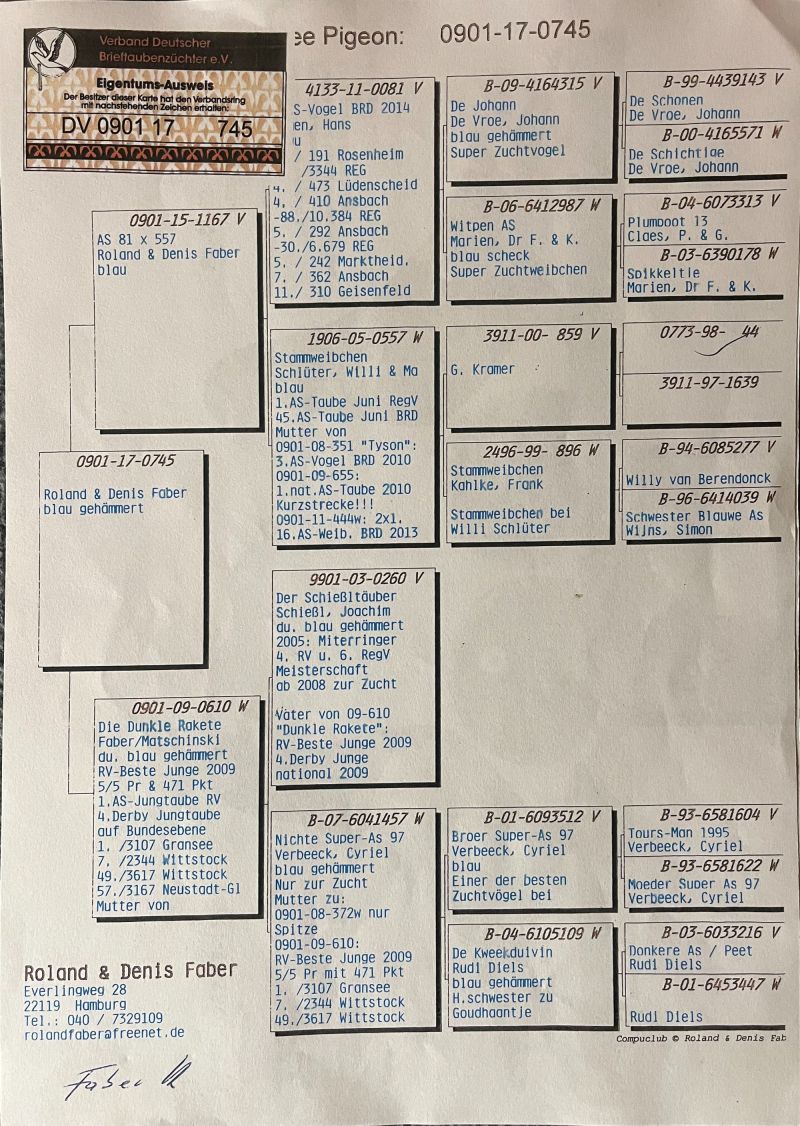 ee Pigeon: 0901-17-0745
Verband Deutscher
Brieftaubenzüchter e.V.
Eigentums-Ausweis
Der Besitzer dieser Karte hat den Verbandsring
mit nachstehenden Zeichen erhalten:
DV 0901 17 745
0901-17-0745
Roland & Denis Faber
blau gehämmert
0901-15-1167 V
AS 81 x 557
Roland & Denis Faber
blau
0901-09-0610 W
Die Dunkle Rakete
Faber/Matschinski
du. blau gehämmert
RV-Beste Junge 2009
5/5 Pr & 471 Pkt
1.AS-Jungtaube RV
4.Derby Jungtaube
auf Bundesebene
1. /3107 Gransee
7. /2344 Wittstock
49./3617 Wittstock
57./3167 Neustadt-Gl
Mutter von
4133-11-0081 V
S-Vogel BRD 2014
en, Hans
/ 191 Rosenheim
/3344 REG
4. / 473 Lüdenscheid
4. / 410 Ansbach
-88./10.384 REG
5. / 292 Ansbach
-30./6.679 REG
5. / 242 Marktheid.
7. / 362 Ansbach
11./ 310 Geisenfeld
1906-05-0557 W
Stammweibchen
Schlüter, Willi & Ma
blau
1.AS-Taube Juni RegV
45.AS-Taube Juni BRD
Mutter von
0901-08-351 "Tyson":
3.AS-Vogel BRD 2010
0901-09-655:
1.nat.AS-Taube 2010
Kurzstrecke!!!
0901-11-444w: 2x1.
16.AS-Weib. BRD 2013
9901-03-0260 V
Der Schießltäuber
Schießl, Joachim
du. blau gehämmert
2005: Miterringer
4. RV u. 6. RegV
Meisterschaft
ab 2008 zur Zucht
Vater von 09-610
"Dunkle Rakete":
RV-Beste Junge 2009
4.Derby Junge
national 2009
B-07-6041457 W
Nichte Super-As 97
Verbeeck, Cyriel
blau gehämmert
Nur zur Zucht
Mutter zu:
0901-08-372w nur
Spitze
0901-09-610:
RV-Beste Junge 2009
5/5 Pr mit 471 Pkt
1. /3107 Gransee
7. /2344 Wittstock
49./3617 Wittstock
B-09-4164315 V
De Johann
De Vroe, Johann
blau gehämmert
Super Zuchtvogel
B-06-6412987 W
Witpen AS
Marien, Dr F. & K.
blau scheck
Super Zuchtweibchen
3911-00- 859 V
G. Kramer
2496-99- 896 W
Stammweibchen
Kahlke, Frank
Stammweibchen bei
Willi Schlüter
B-01-6093512 V
Broer Super-As 97
Verbeeck, Cyriel
blau
Einer der besten
Zuchtvögel bei
B-04-6105109 W
De Kweekduivin
Rudi Diels
blau gehämmert
H.schwester zu
Goudhaantje
B-99-4439143 V
De Schonen
De Vroe, Johann
B-00-4165571 W
De Schichtige
De Vroe, Johann
B-04-6073313 V
Plumpoot 13
Claes, P. & G.
B-03-6390178 W
Spikkeltje
Marien, Dr F. & K.
0773-98- 44
3911-97-1639
B-94-6085277 V
Willy van Berendonck
B-96-6414039 W
Schwester Blauwe As
Wijns, Simon
B-93-6581604 V
Tours-Man 1995
Verbeeck, Cyriel
B-93-6581622 W
Moeder Super As 97
Verbeeck, Cyriel
B-03-6033216 V
Donkere As / Peet
Rudi Diels
B-01-6453447 W
Rudi Diels
Roland & Denis Faber
Everlingweg 28
22119 Hamburg
Tel.: 040 / 7329109
rolandfaber@freenet.de
Compuclub © Roland & Denis Fab
Faber